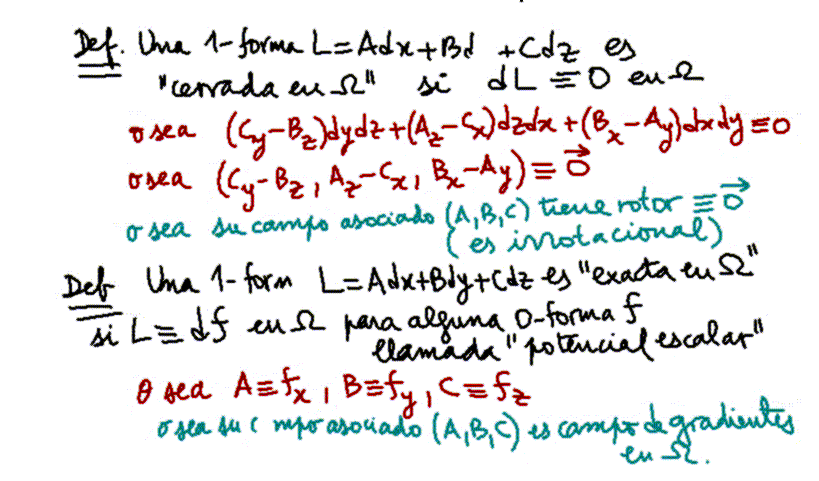 Def. Una 1-forma L=Adx+Bd +Cdz es
"cerrada en Ω" si dL≡0 en Ω
o sea (Cy-Bz)dydz+(Az-Cx)dzdx+(Bx-Ay)dxdy≡0
o sea (Cy-Bz, Az-Cx, Bx-Ay)≡0⃗
o sea su campo asociado (A,B,C) tiene rotor≡0⃗
(es irrotacional)
Def Una 1-form L=Adx+Bdy+Cdz es "exacta en Ω"
si L≡df en Ω para alguna 0-forma f
llamada "potencial escalar"
O sea A≡fx, B≡fy, C≡fz
o sea su c mpo asociado (A,B,C) es campo de gradientes
en Ω.